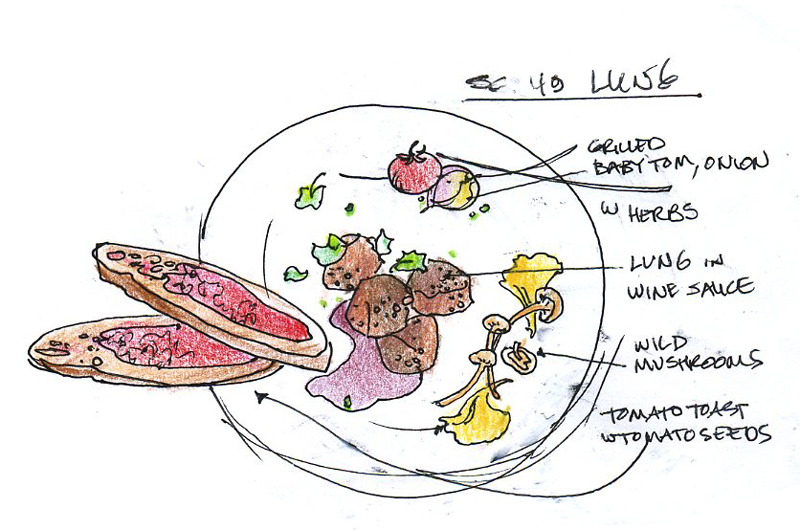 SC. 49 LUNG
GRILLED
BABY TOM, ONION
W HERBS
LUNG IN
WINE SAUCE
WILD
MUSHROOMS
TOMATO TOAST
W TOMATO SEEDS